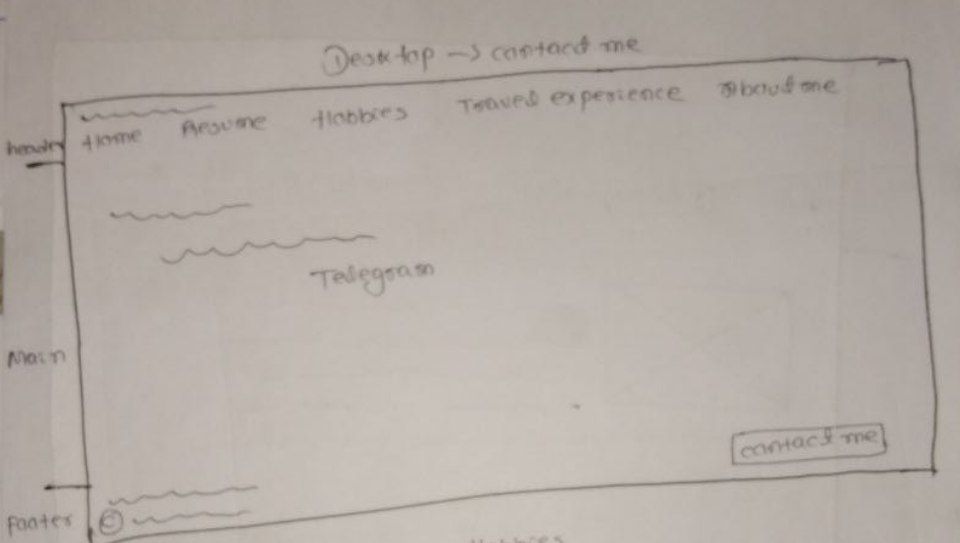 ① Desktop → contact me
Home Resume Hobbies Travel experience About me
header
Telegram
Main
contact me
Footer ©